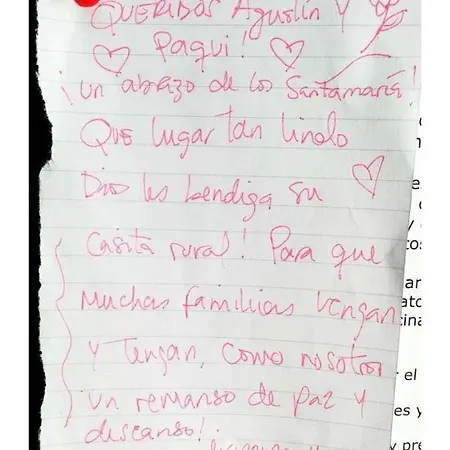 QUERIDOS Agustín y
Paqui!
¡un abrazo de los Santamaría!
QUE lugar tan lindo
Dios les bendiga su
casita rural! Para que
muchas familias vengan
y tengan, como nosotros
un remanso de paz y
descanso!.